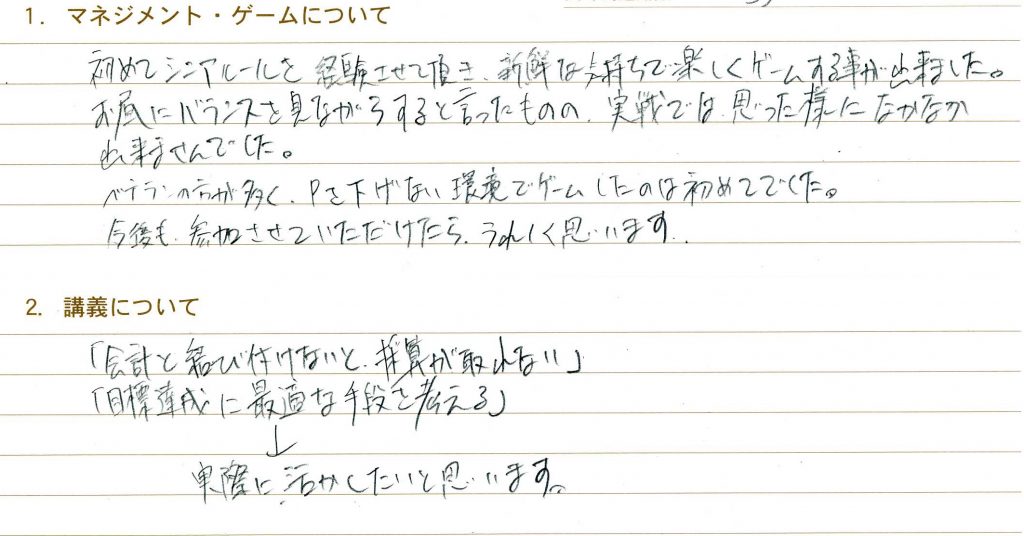 1. マネジメント・ゲームについて
初めてシニアルールを経験させて頂き、新鮮な気持ちで楽しくゲームする事が出来ました。
お昼にバランスを見ながらすると言ったものの、実戦では、思った様になかなか
出来ませんでした。
ベテランの方が多く、Pを下げない環境でゲームしたのは初めてでした。
今後も、参加させていただけたら、うれしく思います.
2. 講義について
「会計と結び付けないと、採算が取れない」
「目標達成に最適な手段を考える」
↓
実際に活かしたいと思います。